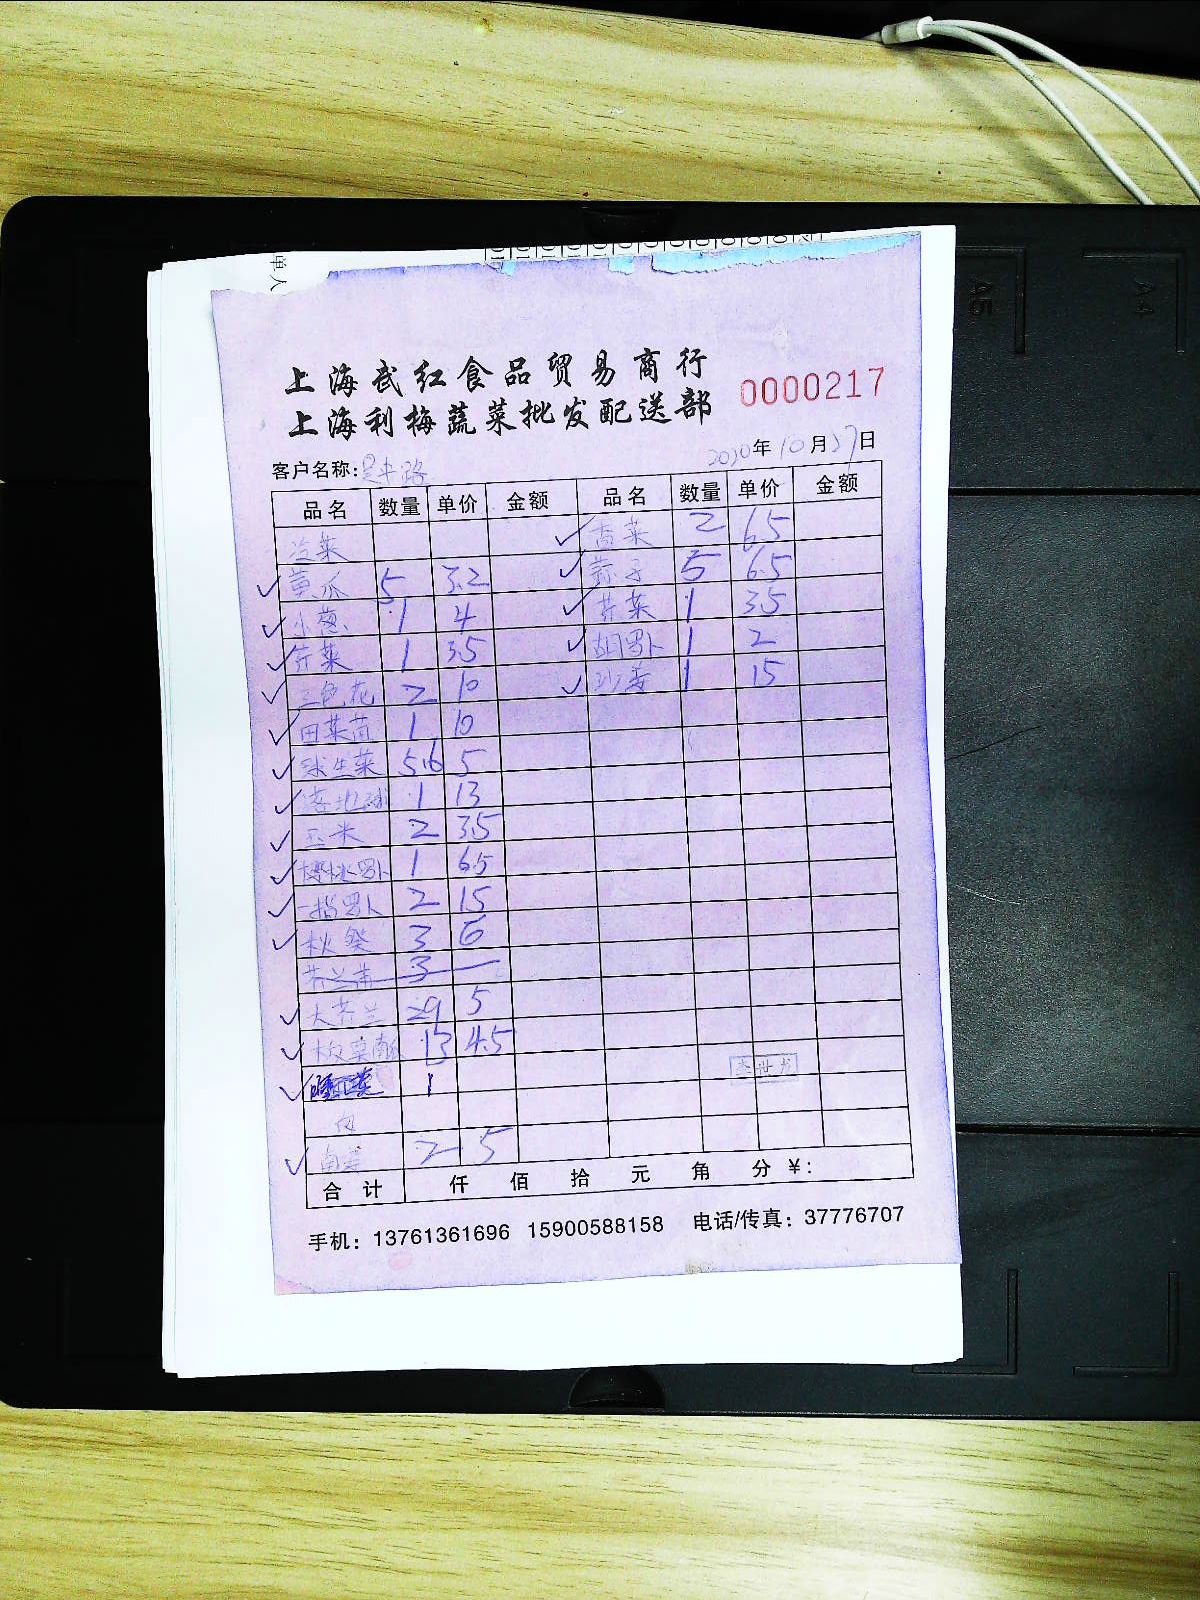 单人
上海武红食品贸易商行
上海利梅蔬菜批发配送部
0000217
2020年10月27日
客户名称:
品名 数量 单价 金额 品名 数量 单价 金额
冷菜 香菜 2 6.5
黄瓜 5 3.2 5 6.5
小葱 1 4 芹菜 1 3.5
芹菜 1 3.5 胡罗卜 1 2
三色花 2 10 沙姜 1 15
田菜苗 1 10
球生菜 5.6 5
1 13
玉米 2 3.5
樱桃罗卜 1 6.5
罗卜 2 15
秋葵 3 6
3
大芥兰 29 5
板栗南瓜 13 4.5
1
肉
南姜 2 5
合计 仟 佰 拾 元 角 分 ¥:
李世龙
手机: 13761361696 15900588158 电话/传真: 37776707
A5
A4